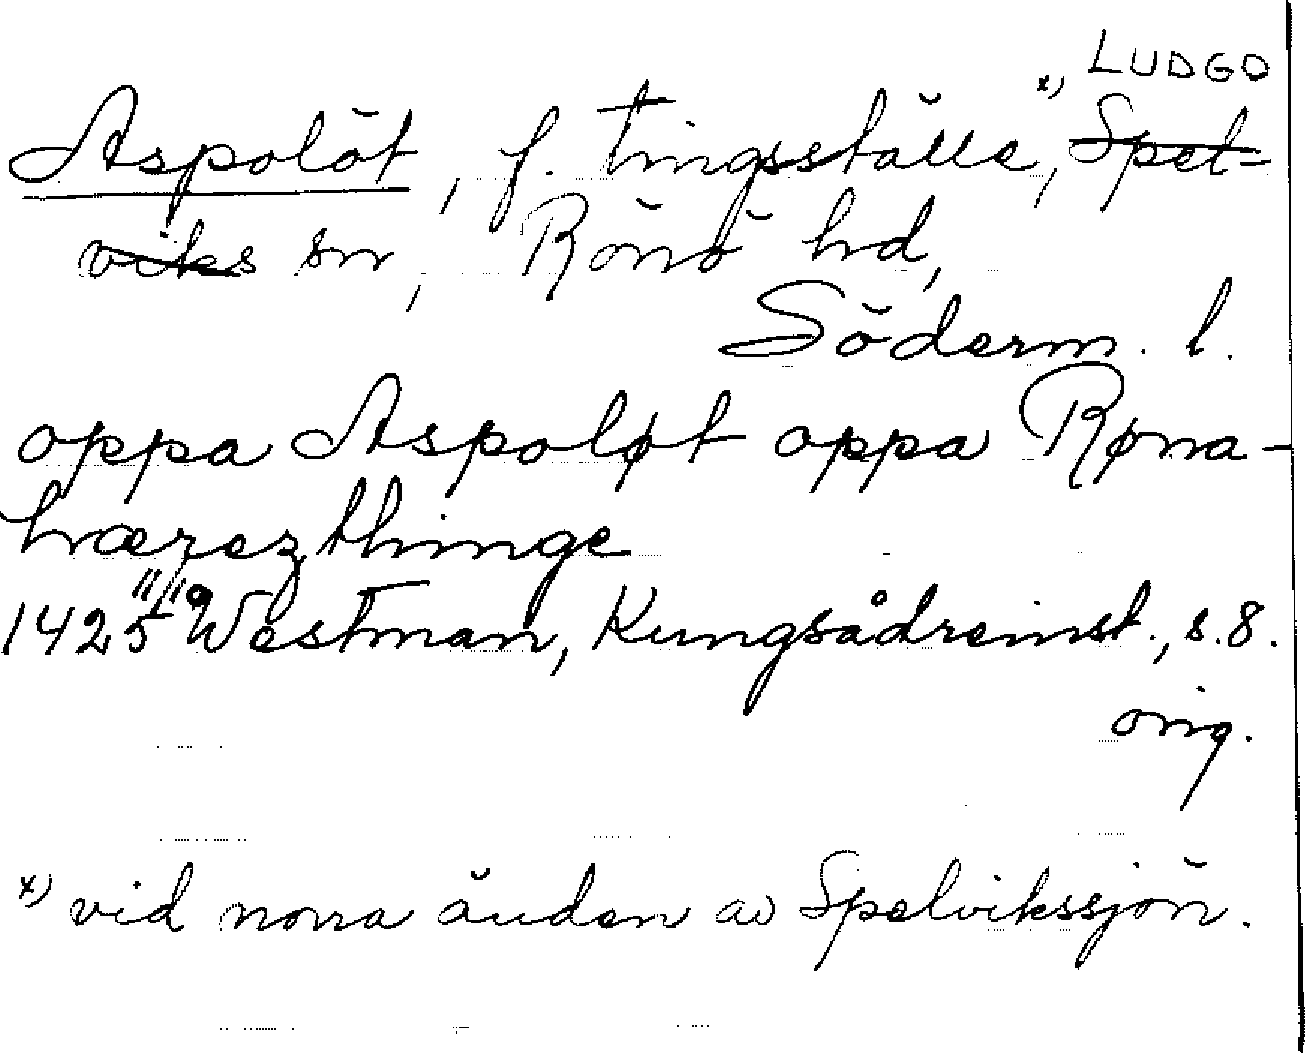 LUDGO
Aspolöt, f. tingsställe, x) Spel-
viks sn, Rönö hd,
Söderm. l.
oppa Aspoløt oppa Røna-
hærez thinge
1425 11/10 Westman, Kungsådreinst., s. 8.
orig.
x) vid norra änden av Spelvikssjön.